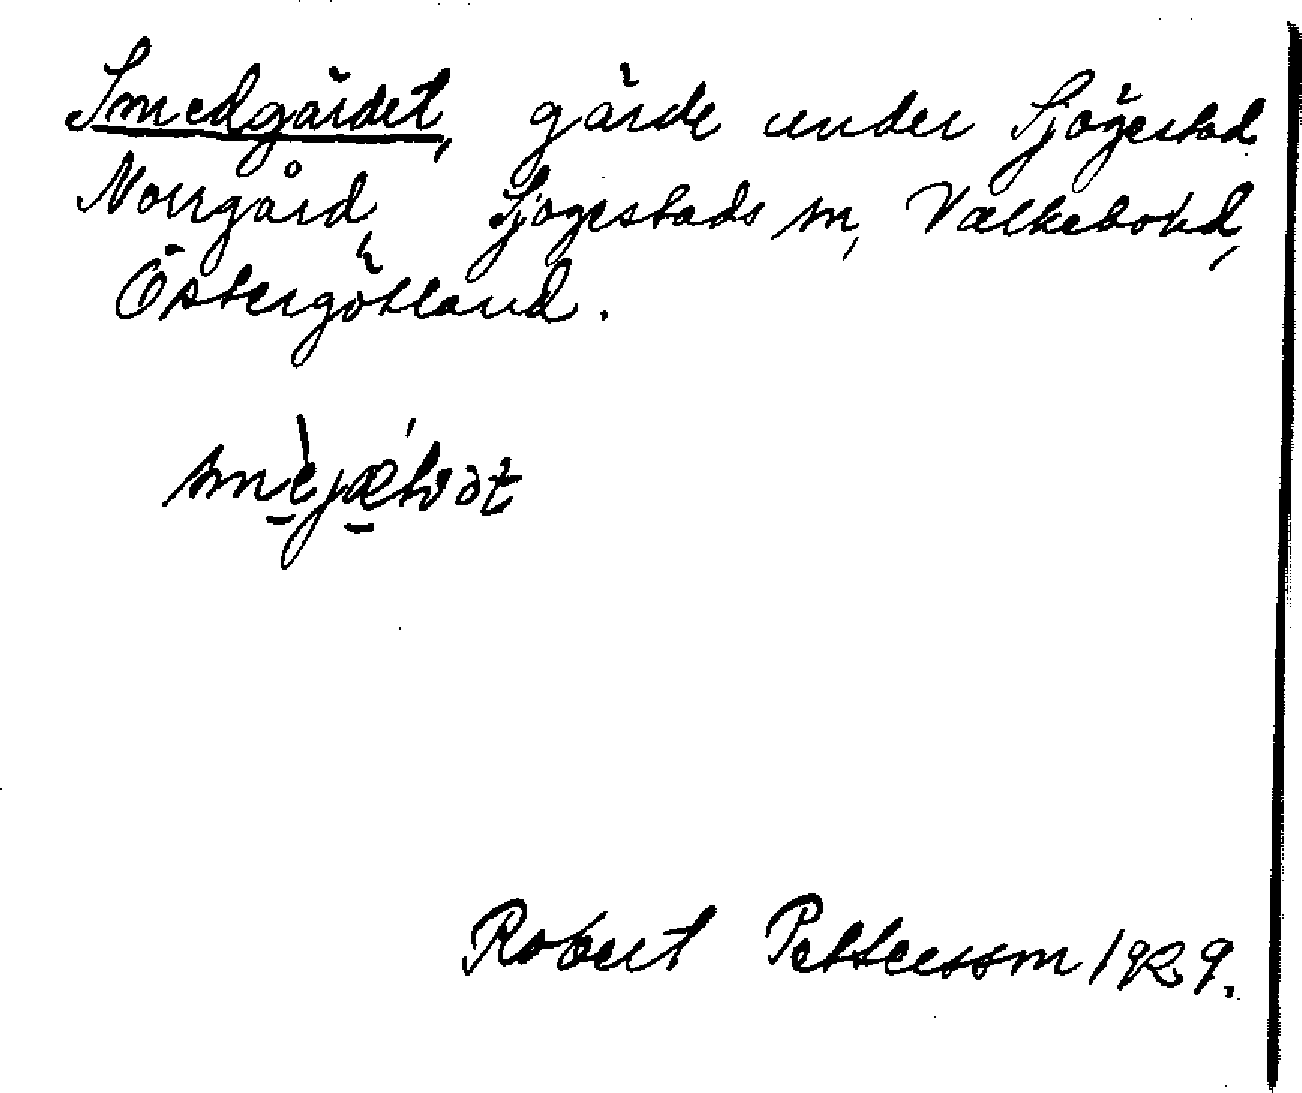 Smedgärdet, gärde under Sjögestad
Norrgård, Sjögestads sn, Valkebohd,
Östergötland.
Robert Pettersson 1929.